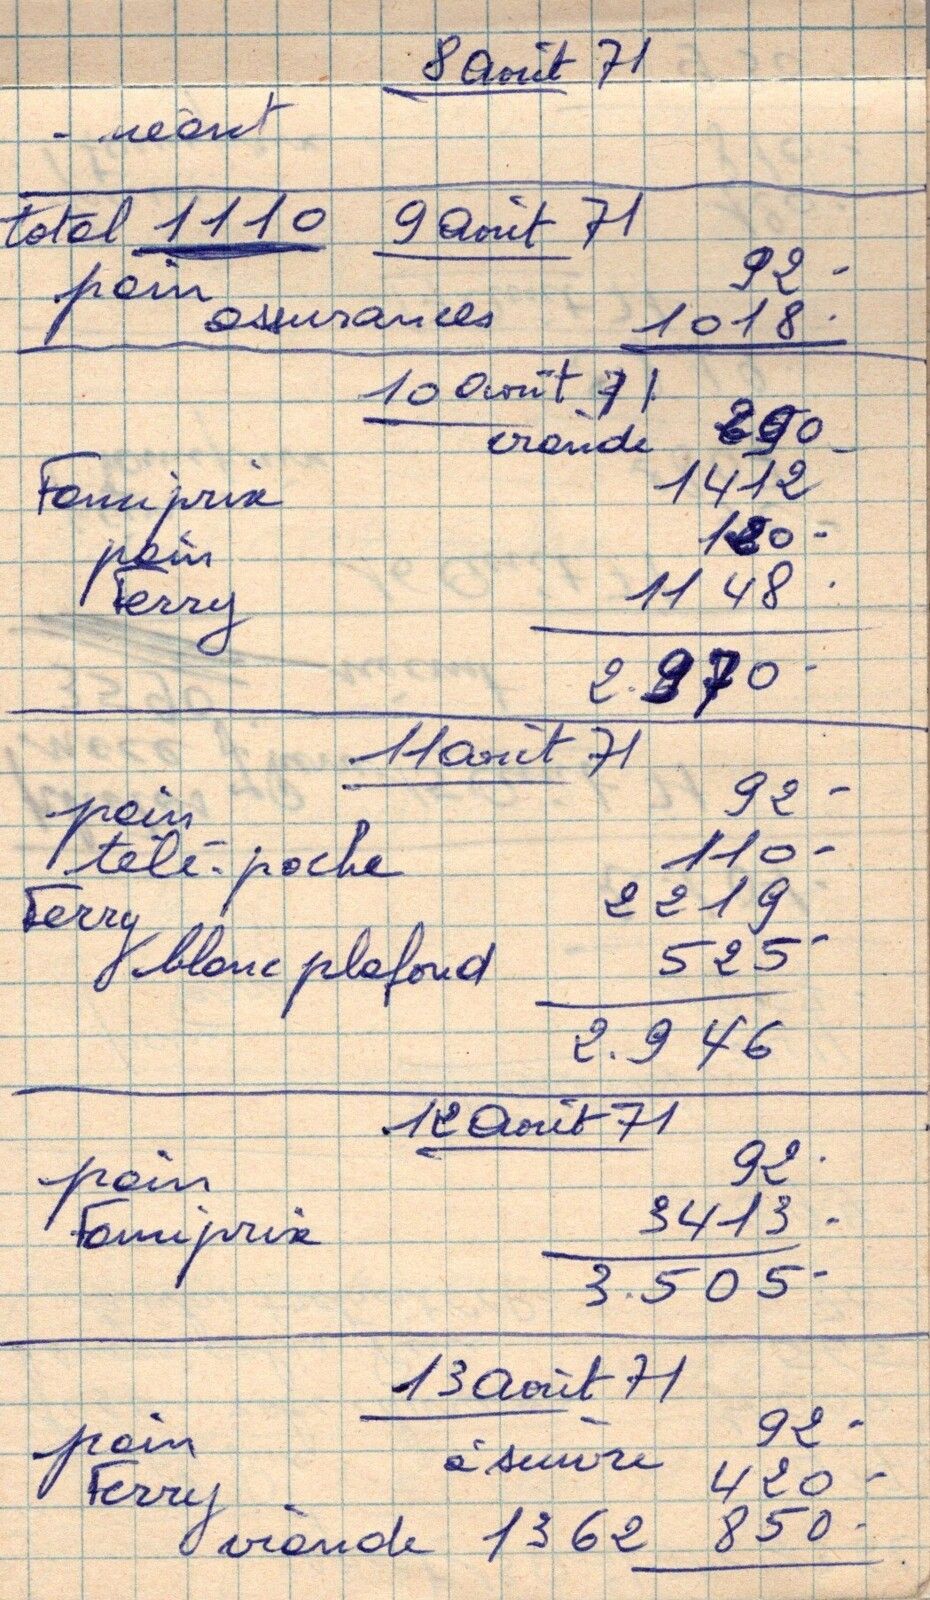 8 août 71
- néant
total 1110 9 août 71
pain 92 -
assurances 1018 -
10 août 71
viande 290
Famiprix 1412 -
pain 120 -
Ferry 1148 -
2.970 -
11 août 71
pain 92 -
télé-poche 110 -
Ferry 2219
blanc plafond 525 -
2.946
12 août 71
pain 92 -
Famiprix 3413 -
3.505 -
13 août 71
pain 92 -
à suivre
Ferry 420 -
viande 1362 850 -